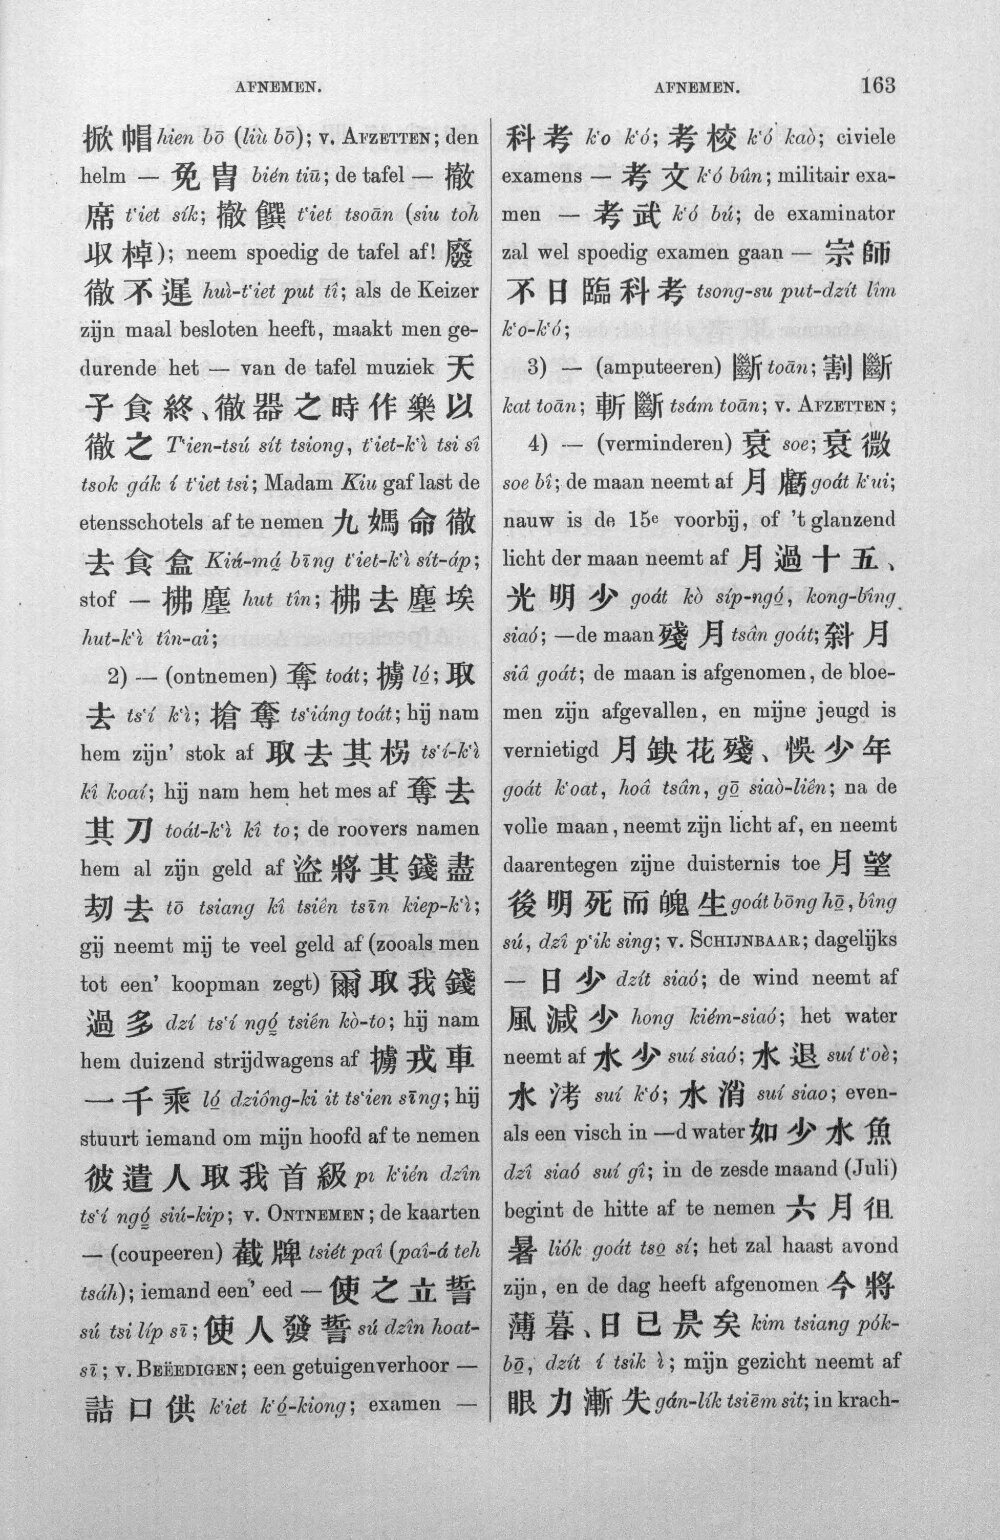 AFNEMEN.
掀帽 hien bō (liù bō); v. AFZETTEN; den
helm — 免冑 bién tiū; de tafel — 撤
席 t‘iet sík; 撤饌 t‘iet tsoān (siu toh
收棹); neem spoedig de tafel af! 廢
徹不遲 huì-t‘iet put tî; als de Keizer
zijn maal besloten heeft, maakt men ge-
durende het — van de tafel muziek 天
子食終、徹器之時作樂以
徹之 T‘ien-tsú sít tsiong, t‘iet-k‘ì tsi sî
tsok gák í t‘iet tsi; Madam Kiu gaf last de
etensschotels af te nemen 九媽命徹
去食盒 Kiú-má bīng t‘iet-k‘ì sít-áp;
stof — 拂塵 hut tîn; 拂去塵埃
hut-k‘ì tîn-ai;
2) — (ontnemen) 奪 toát; 擄 ló; 取
去 ts‘í k‘ì; 搶奪 ts‘iáng toát; hij nam
hem zijn’ stok af 取去其柺 ts‘í-k‘ì
kî koaí; hij nam hem het mes af 奪去
其刀 toát-k‘ì kî to; de roovers namen
hem al zijn geld af 盜將其錢盡
刧去 tō tsiang kî tsiên tsīn kiep-k‘ì;
gij neemt mij te veel geld af (zooals men
tot een’ koopman zegt) 爾取我錢
過多 dzí ts‘í ngó tsién kò-to; hij nam
hem duizend strijdwagens af 擄戎車
一千乘 ló dzióng-ki it ts‘ien sīng; hij
stuurt iemand om mijn hoofd af te nemen
彼遣人取我首級 pi k‘ién dzîn
ts‘í ngó siú-kip; v. ONTNEMEN; de kaarten
— (coupeeren) 截牌 tsiét paî (paî-á teh
tsáh); iemand een’ eed — 使之立誓
sú tsi líp sī; 使人發誓 sú dzîn hoat-
sī; v. BEËEDIGEN; een getuigenverhoor —
詰口供 k‘iet k‘ó-kiong; examen —
AFNEMEN. 163
科考 k‘o k‘ó; 考校 k‘ó kaò; civiele
examens — 考文 k‘ó bûn; militair exa-
men — 考武 k‘ó bú; de examinator
zal wel spoedig examen gaan — 宗師
不日臨科考 tsong-su put-dzít lîm
k‘o-k‘ó;
3) — (amputeeren) 斷 toān; 割斷
kat toān; 斬斷 tsám toān; v. AFZETTEN;
4) — (verminderen) 衰 soe; 衰微
soe bî; de maan neemt af 月虧 goát k‘ui;
nauw is de 15e voorbij, of ’t glanzend
licht der maan neemt af 月過十五、
光明少 goát kò síp-ngó, kong-bîng
siaó; —de maan 殘月 tsân goát; 斜月
siâ goát; de maan is afgenomen, de bloe-
men zijn afgevallen, en mijne jeugd is
vernietigd 月缺花殘、悞少年
goát k‘oat, hoâ tsân, gō siaò-liên; na de
volle maan, neemt zijn licht af, en neemt
daarentegen zijne duisternis toe 月望
後明死而魄生 goát bōng hō, bîng
sú, dzî p‘ik sing; v. SCHIJNBAAR; dagelijks
— 日少 dzít siaó; de wind neemt af
風減少 hong kiém-siaó; het water
neemt af 水少 suí siaó; 水退 suí t‘oè;
水洘 suí k‘ó; 水消 suí siao; even-
als een visch in —d water 如少水魚
dzî siaó suí gî; in de zesde maand (Juli)
begint de hitte af te nemen 六月徂
暑 liók goát tso sí; het zal haast avond
zijn, en de dag heeft afgenomen 今將
薄暮、日已昃矣 kim tsiang pók-
bō, dzít í tsik ì; mijn gezicht neemt af
眼力漸失 gán-lík tsiēm sit; in krach-